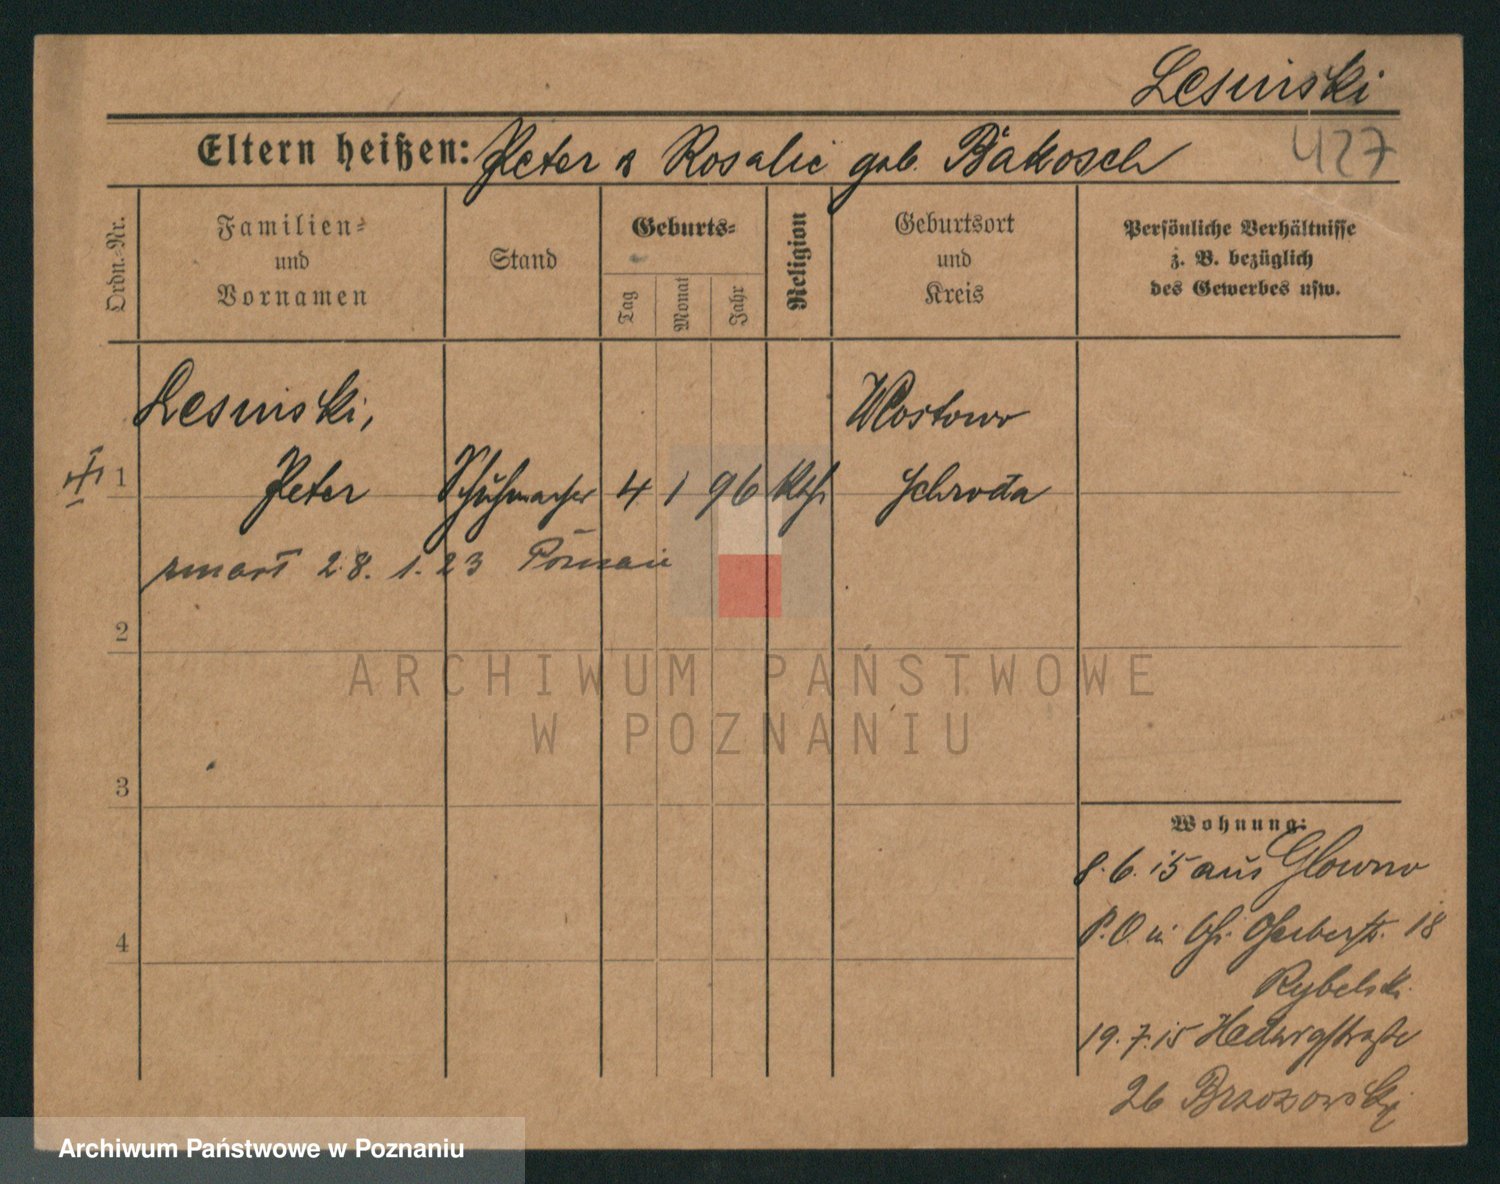 Lesinski
427
Eltern heißen: Peter & Rosalie geb. Bakosch
Ordn.-Nr.
Familien-
und
Vornamen
Stand
Geburts-
Tag
Monat
Jahr
Religion
Geburtsort
und
Kreis
Persönliche Verhältnisse
z. B. bezüglich
des Gewerbes usw.
Lesinski,
Wlostowo
1 Peter Schuhmacher 4 1 96 Kth. Schroda
zmarł 28. 1. 23 Poznań
2
ARCHIWUM PAŃSTWOWE
W POZNANIU
3
4
Wohnung:
8. 6. 15 aus Glowno
P. O. in Gerberstr. 18
Rybelski
19. 7. 15 Hedwigstraße
26 Brzozowski
Archiwum Państwowe w Poznaniu